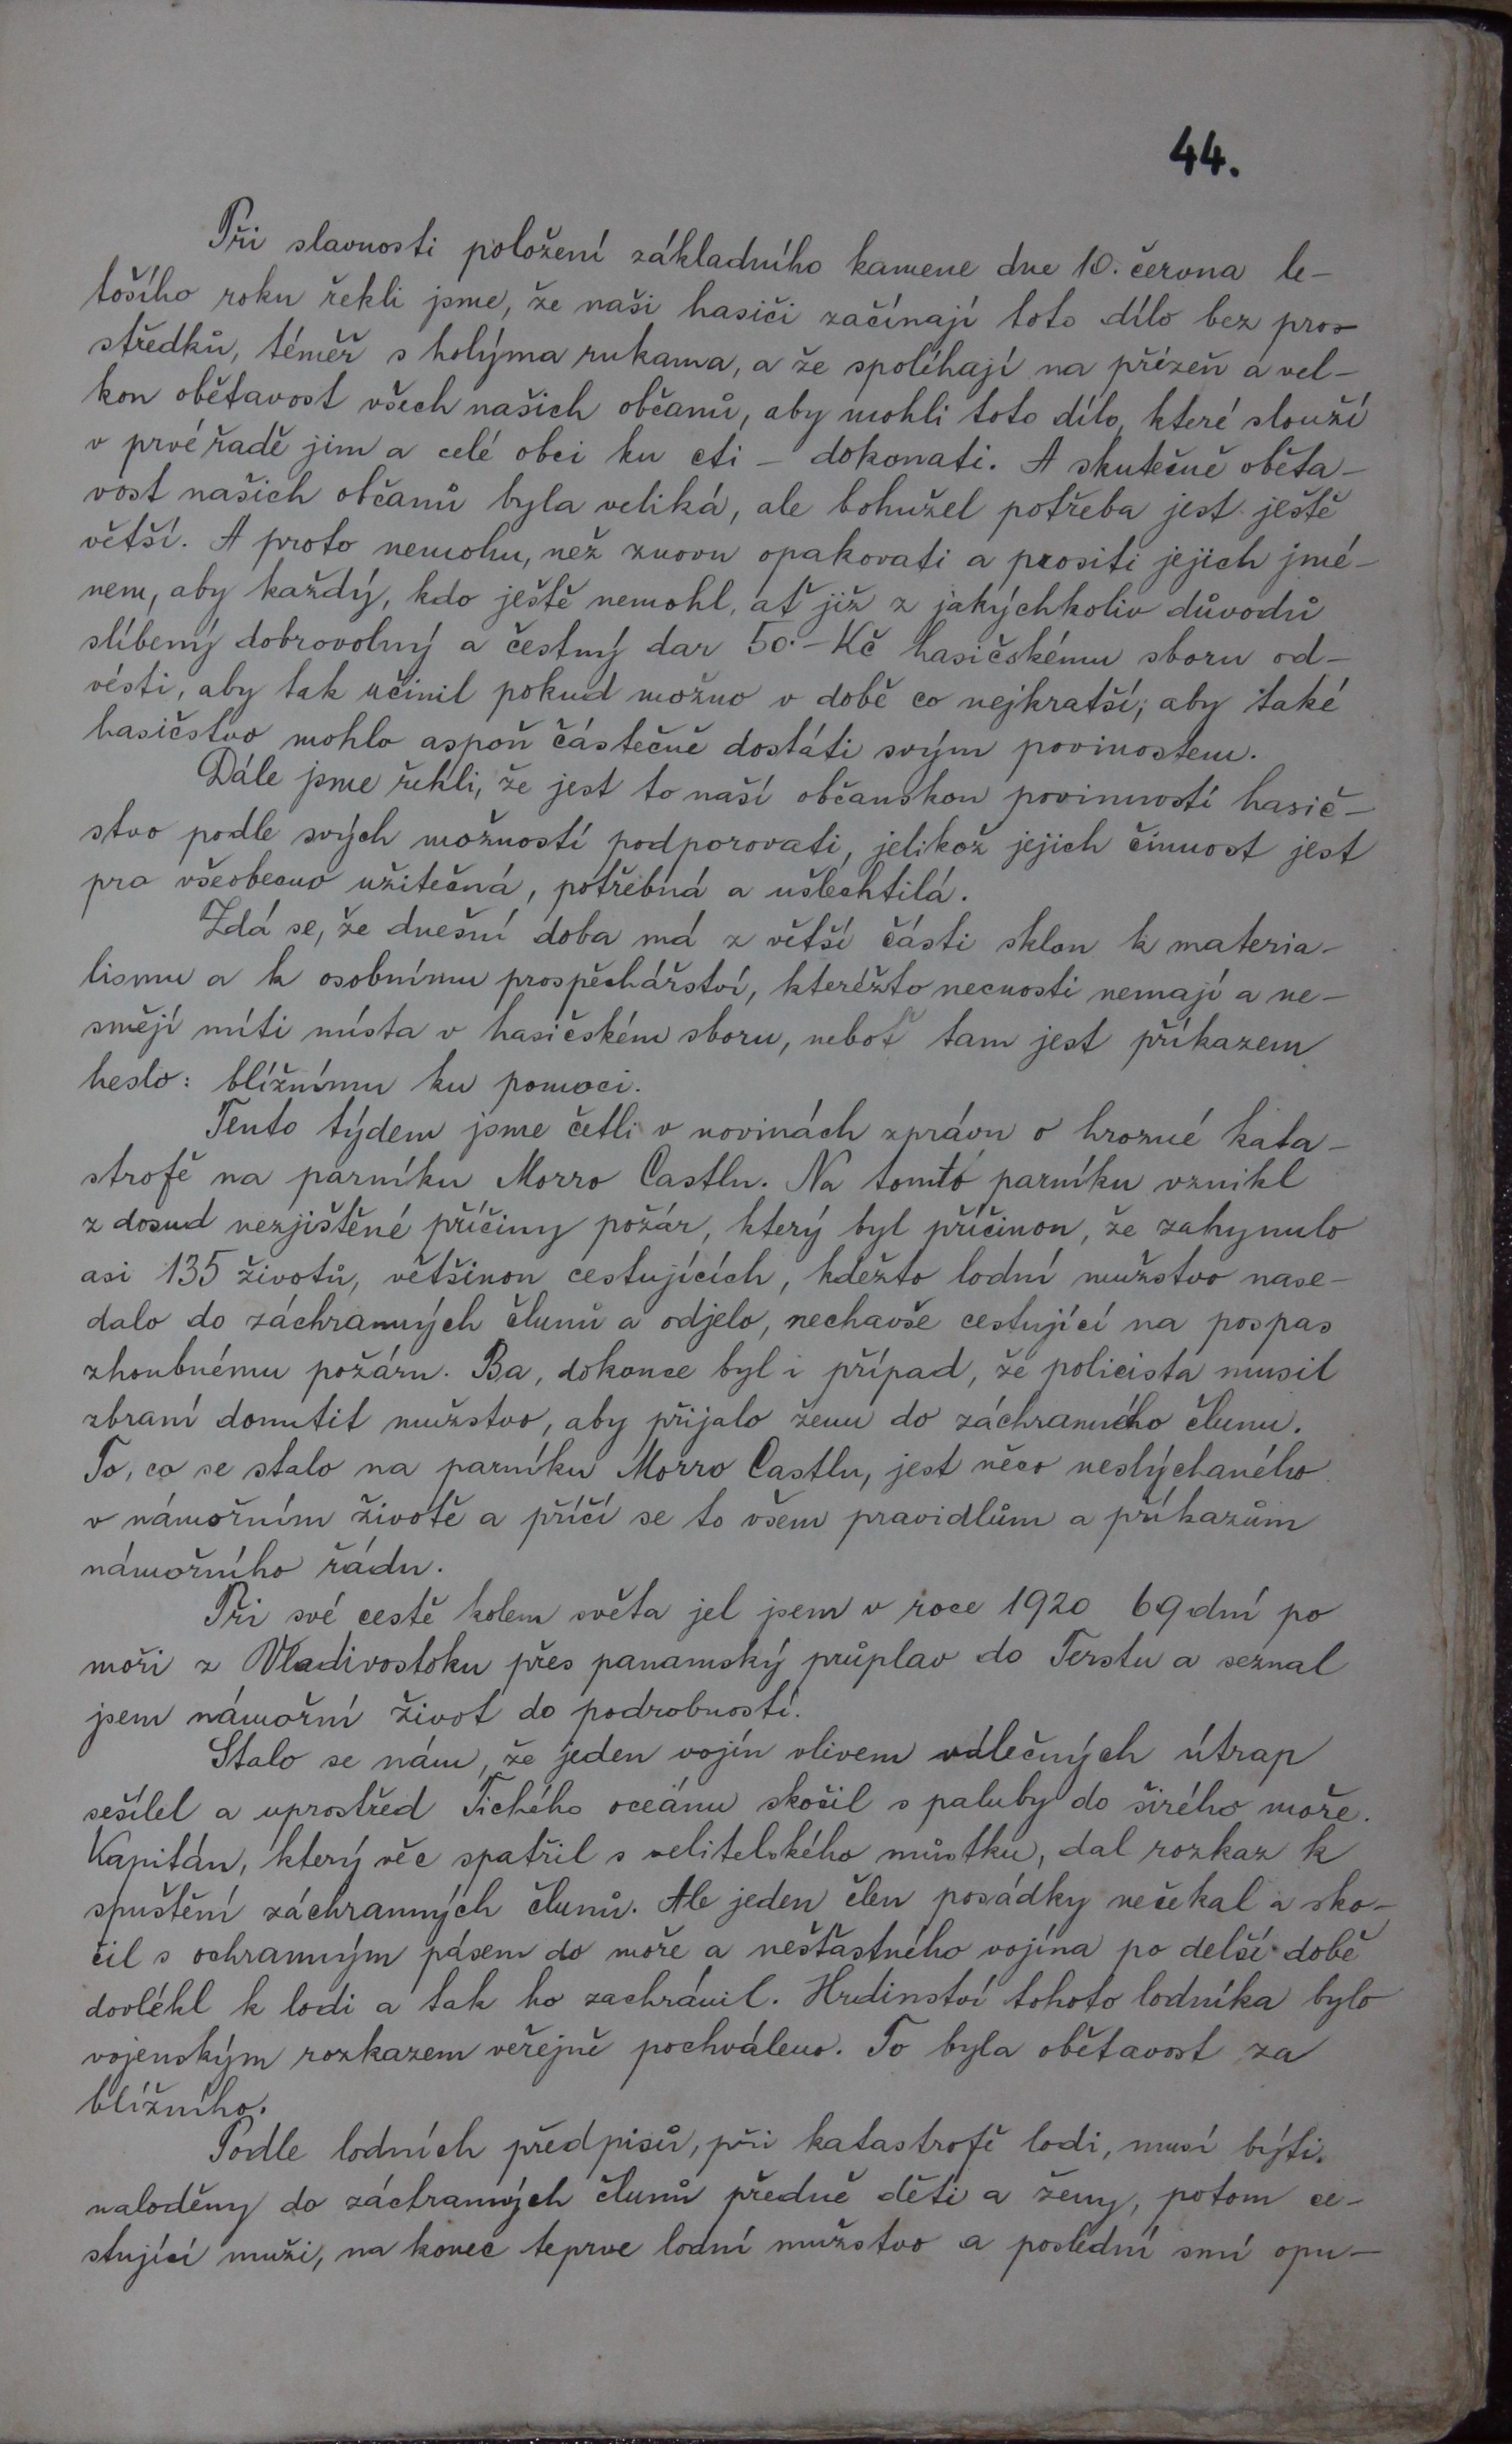 44.
Při slavnosti položení základního kamene dne 10. června le-
tošího roku řekli jsme, že naši hasiči začínají toto dílo bez pros-
středků, téměř s holýma rukama, a že spoléhají na přízeň a vel-
kou obětavost všech našich občanů, aby mohli toto dílo, které slouží
v prvé řadě jim a celé obci ku cti - dokonati. A skutečně oběta-
vost našich občanů byla veliká, ale bohužel potřeba jest ještě
větší. A proto nemohu, než znovu opakovati a prositi jejich jmé-
nem, aby každý, kdo ještě nemohl, ať již z jakýchkoliv důvodů
slíbený dobrovolný a čestný dar 50.- Kč hasičskému sboru od-
vésti, aby tak učinil pokud možno v době co nejkratší, aby také
hasičstvo mohlo aspoň částečně dostáti svým povinostem.
Dále jsme řekli, že jest to naší občanskou povinností hasič-
stvo podle svých možností podporovati, jelikož jejich činnost jest
pro všeobecno užitečná, potřebná a ušlechtilá.
Zdá se, že dnešní doba má z větší části sklon k materia-
lismu a k osobnímu prospěchářství, kteréžto necnosti nemají a ne-
smějí míti místa v hasičském sboru, neboť tam jest příkazem
heslo: bližnímu ku pomoci.
Tento týdem jsme četli v novinách zprávu o hrozné kata-
strofě na parníku Morro Castlu. Na tomto parníku vznikl
z dosud nezjištěné příčiny požár, který byl příčinou, že zahynulo
asi 135 životů, většinou cestujících, kdežto lodní mužstvo nase-
dalo do záchranných člunů a odjelo, nechavše cestující na pospas
zhoubnému požáru. Ba, dokonce byl i případ, že policista musil
zbraní donutit mužstvo, aby přijalo ženu do záchranného člunu.
To, co se stalo na parníku Morro Castlu, jest něco neslýchaného
v námořním životě a příčí se to všem pravidlům a příkazům
námořního řádu.
Při své cestě kolem světa jel jsem v roce 1920 69 dní po
moři z Vladivostoku přes panamský průplav do Terstu a seznal
jsem námořní život do podrobností.
Stalo se nám, že jeden vojín vlivem válečných útrap
sešílel a uprostřed Tichého oceánu skočil s paluby do širého moře.
Kapitán, který věc spatřil s velitelského můstku, dal rozkaz k
spuštění záchranných člunů. Ale jeden člen posádky nečekal a sko-
čil s ochranným pásem do moře a nešťastného vojína po delší době
dovlékl k lodi a tak ho zachránil. Hrdinství tohoto lodníka bylo
vojenským rozkazem veřejně pochváleno. To byla obětavost za
bližního.
Podle lodních předpisů, při katastrofě lodi, musí býti
naloděny do záchranných člunů předně děti a ženy, potom ce-
stující muži, na konec teprve lodní mužstvo a poslední smí opu-